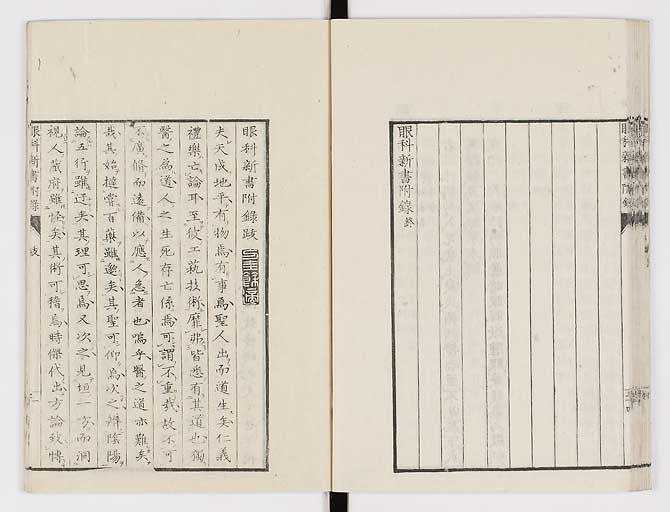 眼科新書附錄終
眼科新書附錄跋
夫天成地平有物焉有事焉聖人出而道生矣仁義
禮樂亡論耳至伎工執技術靡弗皆悉有其道也獨
醫之為道人之生死存亡係焉可謂不重哉故不可
不廣脩而遠備以應人急者也嗚乎醫之道亦難矣
哉其始撻嘗百藥雖邈矣其聖可仰焉次之辨陰陽
論五行雖迂矣其理可思焉又次之見垣一方而洞
視人蔵府雖怪矣其術可稽焉時傑代出方論致博
眼科新書附錄
跋